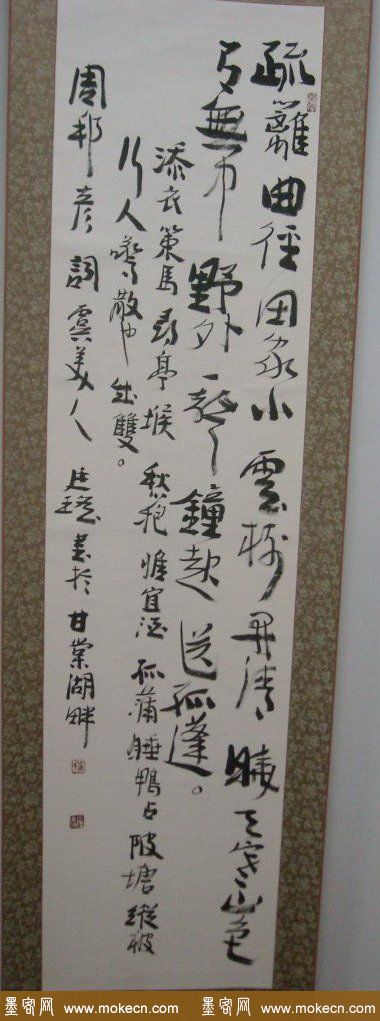 疏籬曲徑田家小雲樹開清曉天寒山色
有無中野外一聲鐘起送孤蓬。
添衣策馬尋亭堠愁抱惟宜酒孤蒲睡鴨占陂塘縱被
行人驚散又成雙。
周邦彥詞虞美人 廷 書於甘棠湖畔
墨客网 www.mokecn.com 墨客网 www.mokecn.com